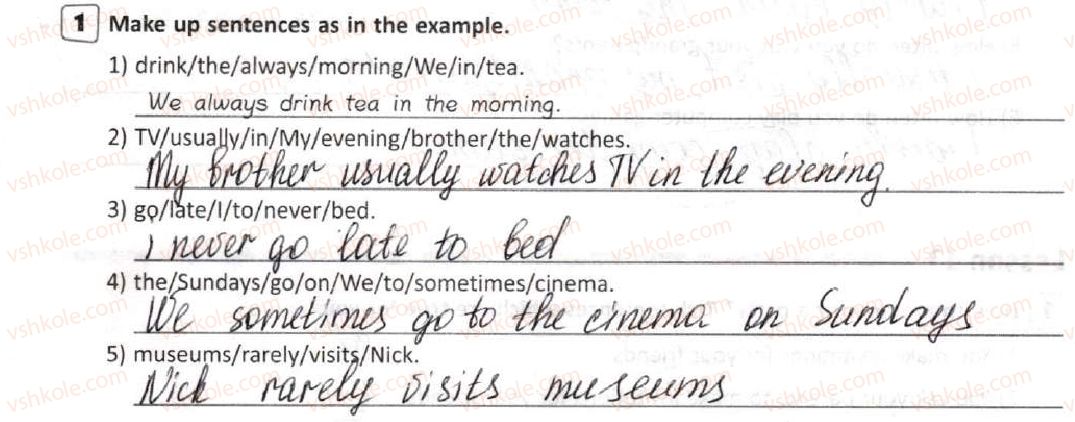 1 Make up sentences as in the example.
1) drink/the/always/morning/We/in/tea.
We always drink tea in the morning.
2) TV/usually/in/My/evening/brother/the/watches.
My brother usually watches TV in the evening.
3) go/late/I/to/never/bed.
I never go late to bed
4) the/Sundays/go/on/We/to/sometimes/cinema.
We sometimes go to the cinema on Sundays
5) museums/rarely/visits/Nick.
Nick rarely visits museums
vshkole.com